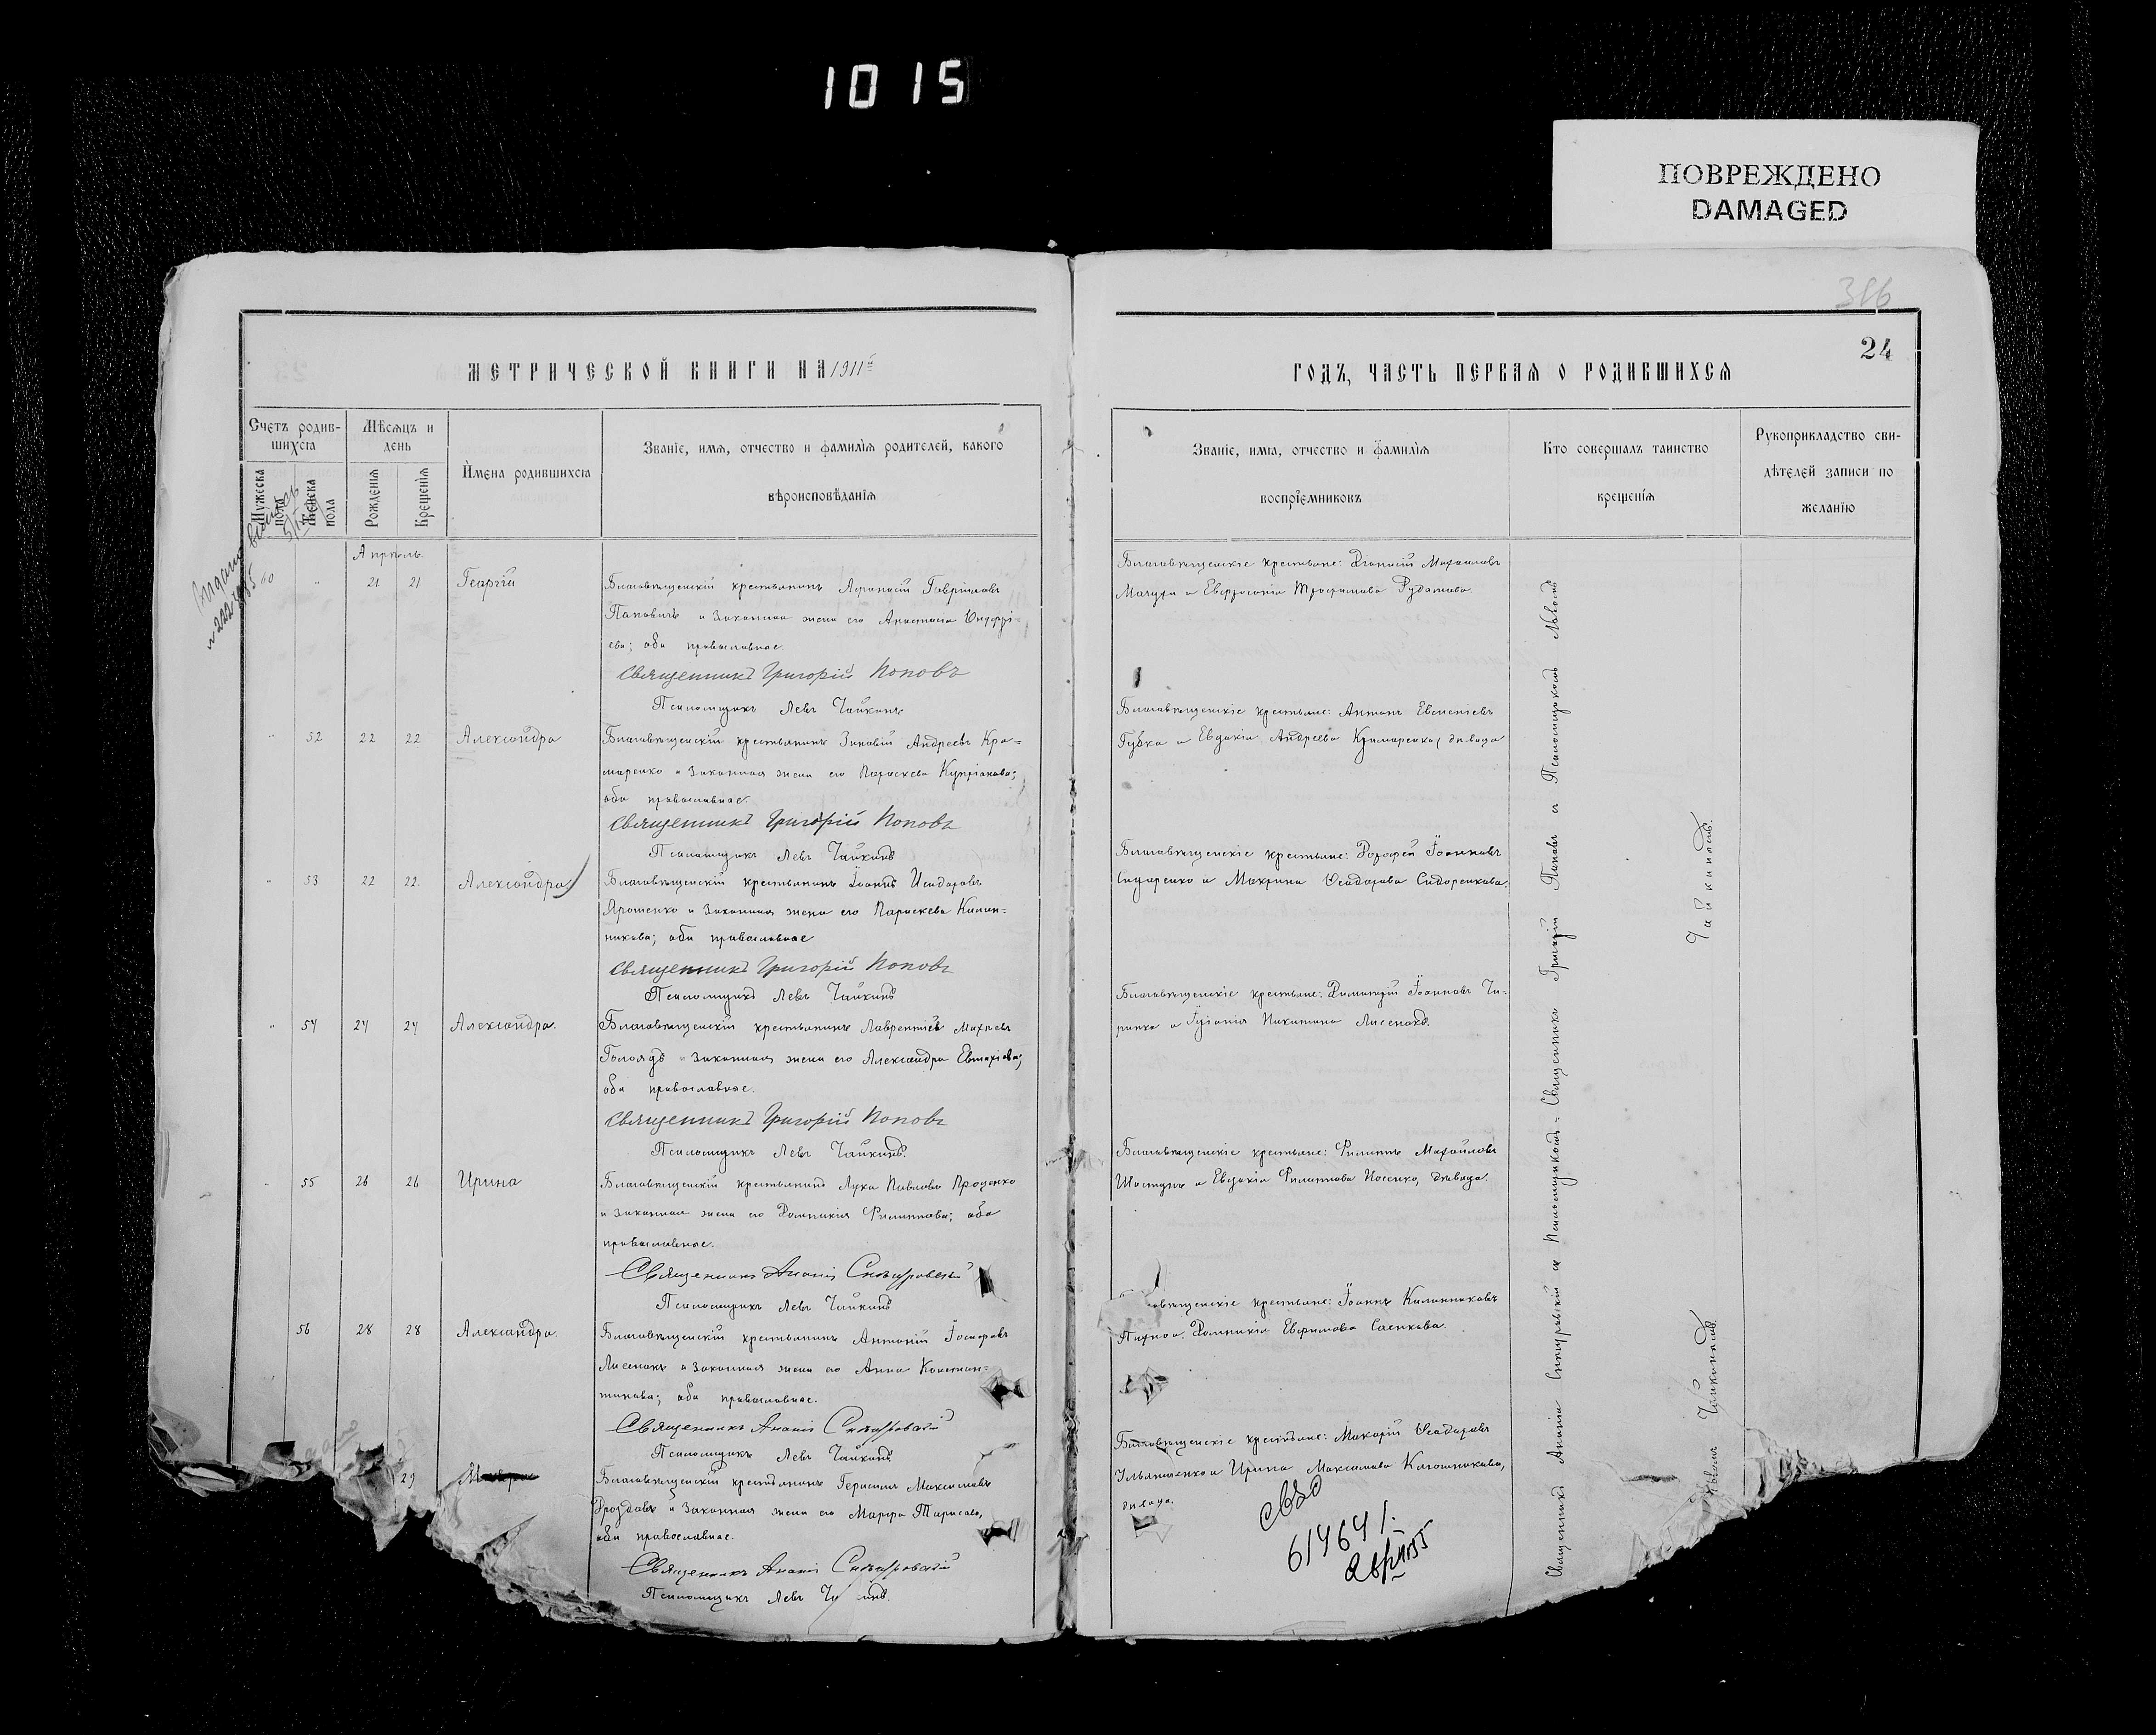 1015
ПОВРЕЖДЕНО
DAMAGED
386
24
МЕТРИЧЕСКОЙ КНИГИ НА 1911й
ГОДЪ, ЧАСТЬ ПЕРВАЯ О РОДИВШИХСЯ
Счетъ родив-
шихся
Мужеска
пола
Женска
пола
Мѣсяцъ и
день
Рожденія
Крещенія
Имена родившихся
Званіе, имя, отчество и фамилія родителей, какого
вѣроисповѣданія
Званіе, имя, отчество и фамилія
воспріемниковъ
Кто совершалъ таинство
крещенія
Рукоприкладство сви-
дѣтелей записи по
желанію
Апрѣль.
60 " 21 21 Георгій
Благовѣщенскій крестьянинъ Афанасій Гавріиловъ
Паповичъ и законная жена его Анастасія Онуфрі=
ева; оба православные.
Священникъ Григорій Поповъ
Псаломщикъ Левъ Чайкинъ
Благовѣщенскіе крестьяне: Діонисій Михаиловъ
и Евфросинія Трофимова
" 52 22 22 Александра
Благовѣщенскій крестьянинъ Зиновій Андреевъ Кра=
маренко и законная жена его Параскева Купріанова;
оба православные.
Священникъ Григорій Поповъ
Псаломщикъ Левъ Чайкинъ
Благовѣщенскіе крестьяне: Антонъ Евгеніевъ
Губка и Евдокія Андреева Крамаренко, дѣвица
" 53 22 22 Александра
Благовѣщенскій крестьянинъ Іоаннъ Исидоровъ
Ярошенко и законная жена его Параскева Калин=
никова; оба православные
Священникъ Григорій Поповъ
Псаломщикъ Левъ Чайкинъ
Благовѣщенскіе крестьяне: Дорофей Іоанновъ
Сидоренко и Макрина Ѳеодорова Сидоренкова.
" 54 24 24 Александра.
Благовѣщенскій крестьянинъ Лаврентій Михеевъ
Голоядъ и законная жена его Александра
оба православные.
Священникъ Григорій Поповъ
Псаломщикъ Левъ Чайкинъ.
Благовѣщенскіе крестьяне: Димитрій Іоанновъ Чи-
рипка и Іуліанія Никитина Лисенко.
" 55 26 26 Ирина
Благовѣщенскій крестьянинъ Лука Павловъ Проценко
и законная жена его Домникія Филиппова; оба
православные.
Священникъ Ананій
Псаломщикъ Левъ Чайкинъ
Благовѣщенскіе крестьяне: Филиппъ Михайловъ
и Евдокія Филиппова Носенко, дѣвица.
56 28 28 Александра.
Благовѣщенскій крестьянинъ Антоній Іосифовъ
Лисенокъ и законная жена его Анна Констан=
тинова; оба православные.
Священникъ Ананій
Псаломщикъ Левъ Чайкинъ
вѣщенскіе крестьяне: Іоаннъ Калинниковъ
Домникія Евфимова Саенкова.
29
Благовѣщенскій крестьянинъ Герасимъ Максимовъ
Дроздовъ и законная жена его Марфа Тарасова,
оба православные.
Священникъ Ананій
Псаломщикъ Левъ
Благовѣщенскіе крестьяне: Макарій Ѳеодоровъ
Ульяненко и Ирина Максимова
дѣвица.
614641.
Священникъ Григорій Поповъ и Псаломщикомъ Львомъ
Чайкинымъ.
Священникъ Ананій и Псаломщикомъ
Львомъ Чайкинымъ.